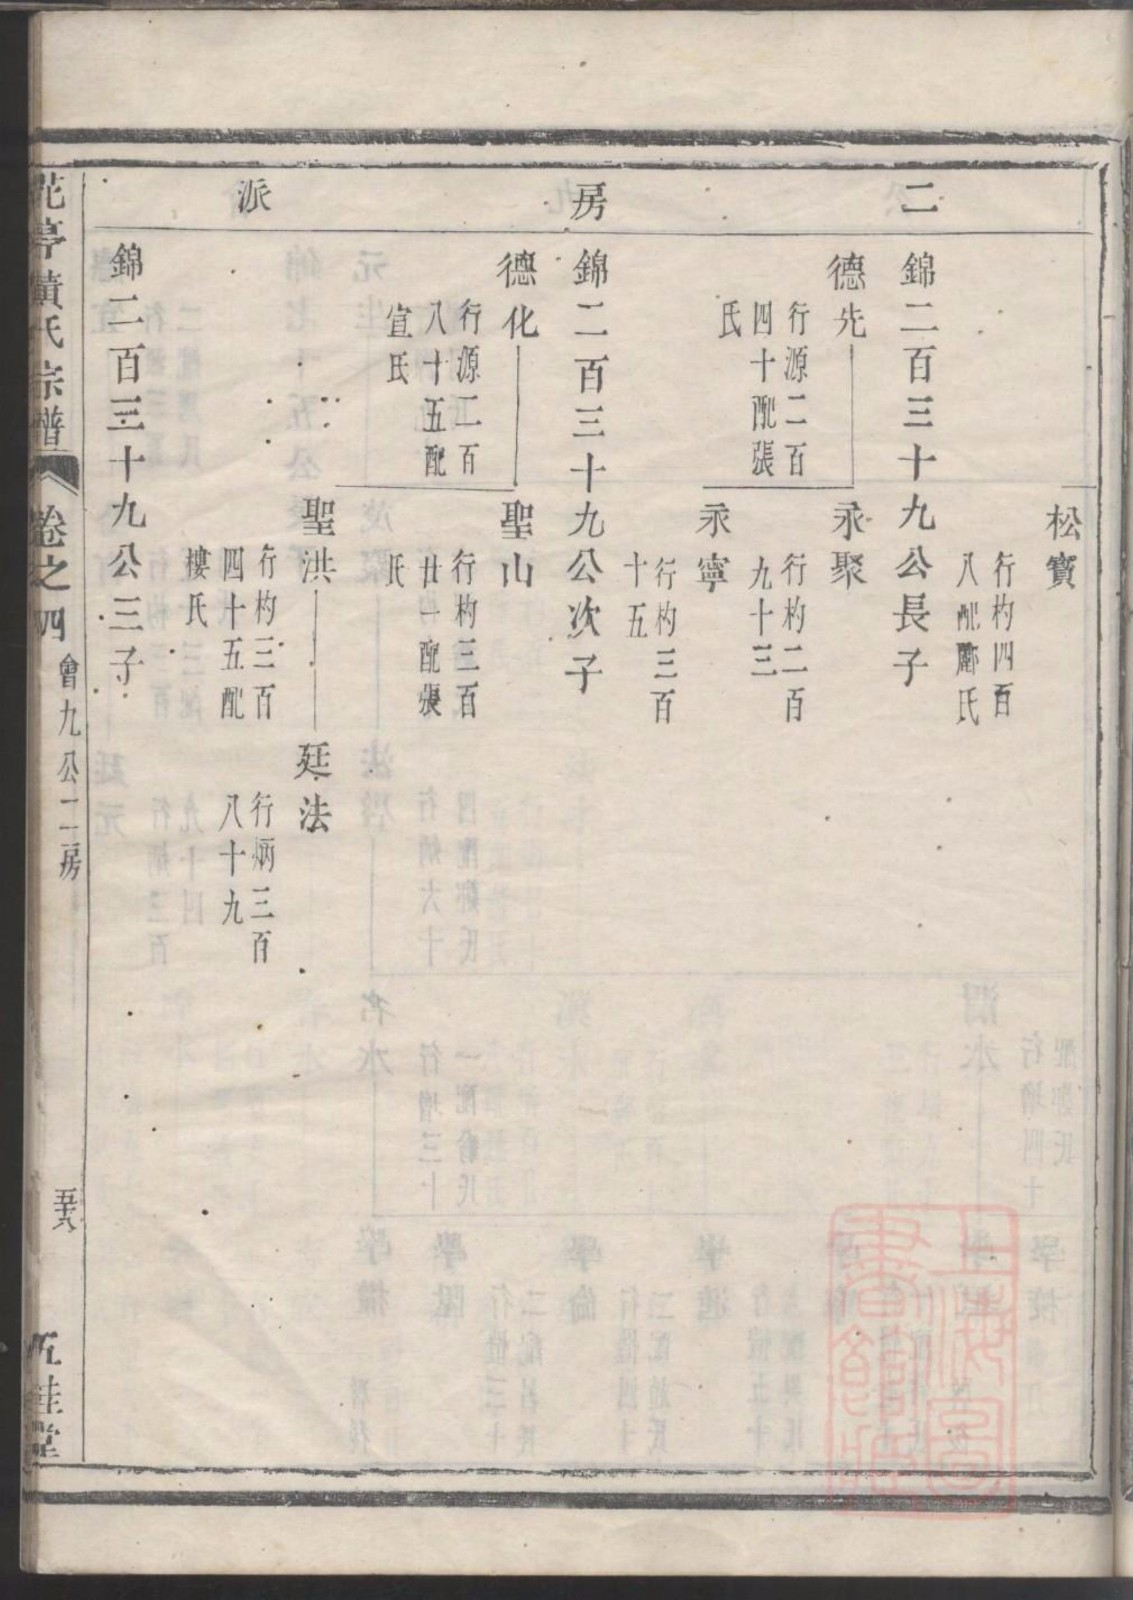 二房派
松寶
行杓四百
八配酈氏
錦二百三十九公長子
德先
行源二百
四十配張
氏
永聚
行杓二百
九十三
永寧
行杓三百
十五
錦二百三十九公次子
德化
行源二百
八十五配
宣氏
聖山
行杓三百
廿一配張
氏
聖洪
行杓三百
四十五配
樓氏
廷法
行炳三百
八十九
錦二百三十九公三子
花亭黄氏宗譜
卷之四
會九公二房
五十六
五桂堂